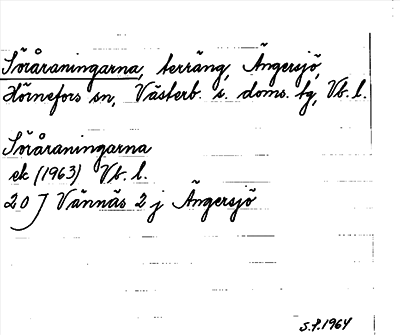 Söråraningarna, terräng, Ängersjö,
Hörnefors sn, Västerb. s. doms. tg, Vb. l.
Söråraningarna
ek (1963) Vb. l.
20 J Vännäs 2 j Ängersjö
S.P. 1964